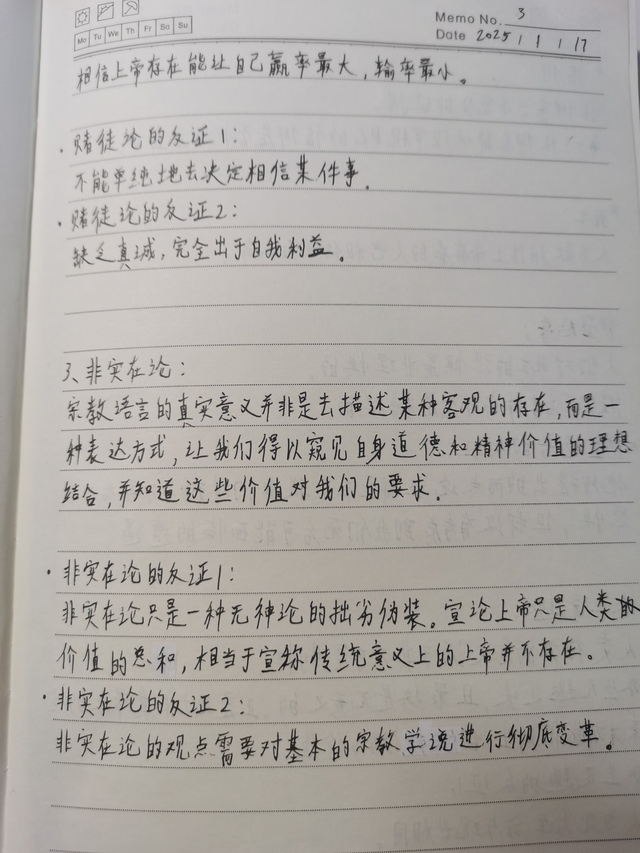 Memo No. 3
Mo Tu We Th Fr Sa Su
Date 2025 / 1 / 17
相信上帝存在能让自己赢率最大，输率最小。
· 赌徒论的反证1：
不能单纯地去决定相信某件事。
· 赌徒论的反证2：
缺乏真诚，完全出于自我利益。
3、非实在论：
宗教语言的真实意义并非是去描述某种客观的存在，而是一
种表达方式，让我们得以窥见自身道德和精神价值的理想
结合，并知道这些价值对我们的要求。
· 非实在论的反证1：
非实在论只是一种无神论的拙劣伪装。宣论上帝只是人类的
价值的总和，相当于宣称传统意义上的上帝并不存在。
· 非实在论的反证2：
非实在论的观点需要对基本的宗教学说进行彻底变革。